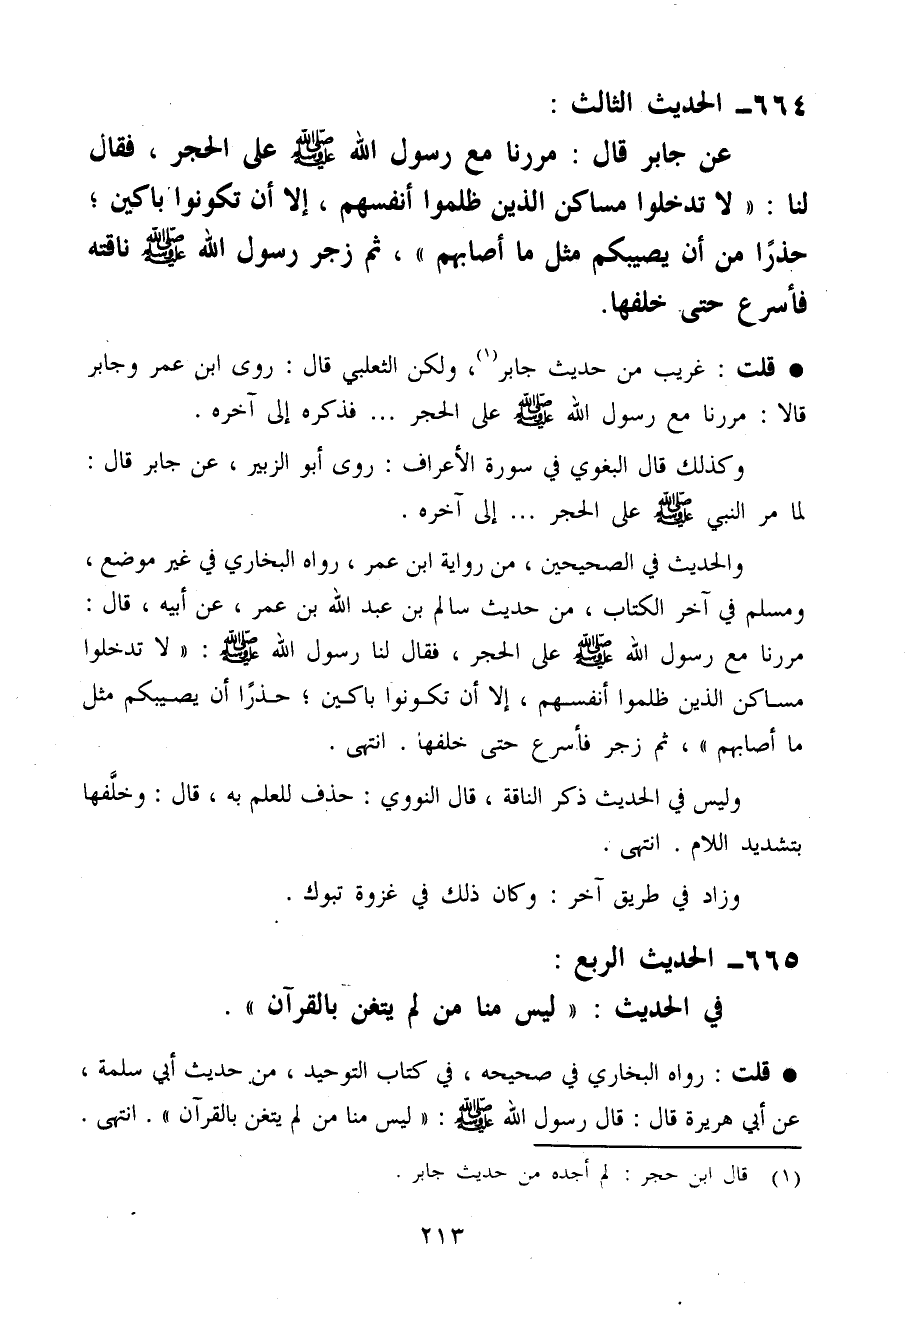 ٦٦٤ـ الحديث الثالث :
عن جابر قال : مررنا مع رسول الله ﷺ على الحجر ، فقال
لنا : « لا تدخلوا مساكن الذين ظلموا أنفسهم ، إلا أن تكونوا باكين ؛
حذرًا من أن يصيبكم مثل ما أصابهم » ، ثم زجر رسول الله ﷺ ناقته
فأسرع حتى خلفها.
● قلت : غريب من حديث جابر(١)، ولكن الثعلبي قال : روى ابن عمر وجابر
قالا : مررنا مع رسول الله ﷺ على الحجر ... فذكره إلى آخره .
وكذلك قال البغوي في سورة الأعراف : روى أبو الزبير ، عن جابر قال :
لما مر النبي ﷺ على الحجر ... إلى آخره .
والحديث في الصحيحين ، من رواية ابن عمر ، رواه البخاري في غير موضع ،
ومسلم في آخر الكتاب ، من حديث سالم بن عبد الله بن عمر ، عن أبيه ، قال :
مررنا مع رسول الله ﷺ على الحجر ، فقال لنا رسول الله ﷺ : « لا تدخلوا
مساكن الذين ظلموا أنفسهم ، إلا أن تكونوا باكين ؛ حذرًا أن يصيبكم مثل
ما أصابهم » ، ثم زجر فأسرع حتى خلفها . انتهى .
وليس في الحديث ذكر الناقة ، قال النووي : حذف للعلم به ، قال : وخلَّفها
بتشديد اللام . انتهى .
وزاد في طريق آخر : وكان ذلك في غزوة تبوك .
٦٦٥ـ الحديث الربع :
في الحديث : « ليس منا من لم يتغن بالقرآن » .
● قلت : رواه البخاري في صحيحه ، في كتاب التوحيد ، من حديث أبي سلمة ،
عن أبي هريرة قال : قال رسول الله ﷺ : « ليس منا من لم يتغن بالقرآن » . انتهى .
(١) قال ابن حجر : لم أجده من حديث جابر .
٢١٣